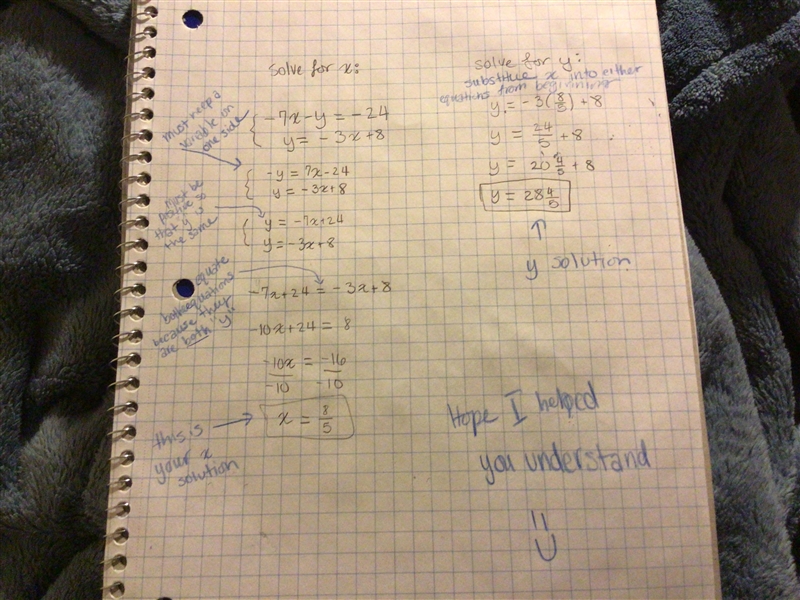 solve for x:
must keep a
variable on
one side
-7x-y = -24
y = -3x+8
-y = 7x-24
y = -3x+8
must be
positive so
that y is
the same
y = -7x+24
y = -3x+8
equate
both equations
because they
are both "y"
-7x+24 = -3x+8
-10x+24 = 8
-10x = -16
-10 -10
x = 8/5
this is
your x
solution
solve for y:
substitue x into either
equations from beginning
y = -3(8/5)+8
y = 24/5 +8
y = 20 4/5 +8
y = 28 4/5
y solution
Hope I helped
you understand
=)